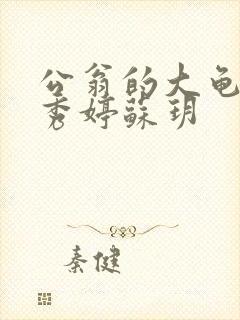 公翁的大龟
秀婷苏玥
秦健